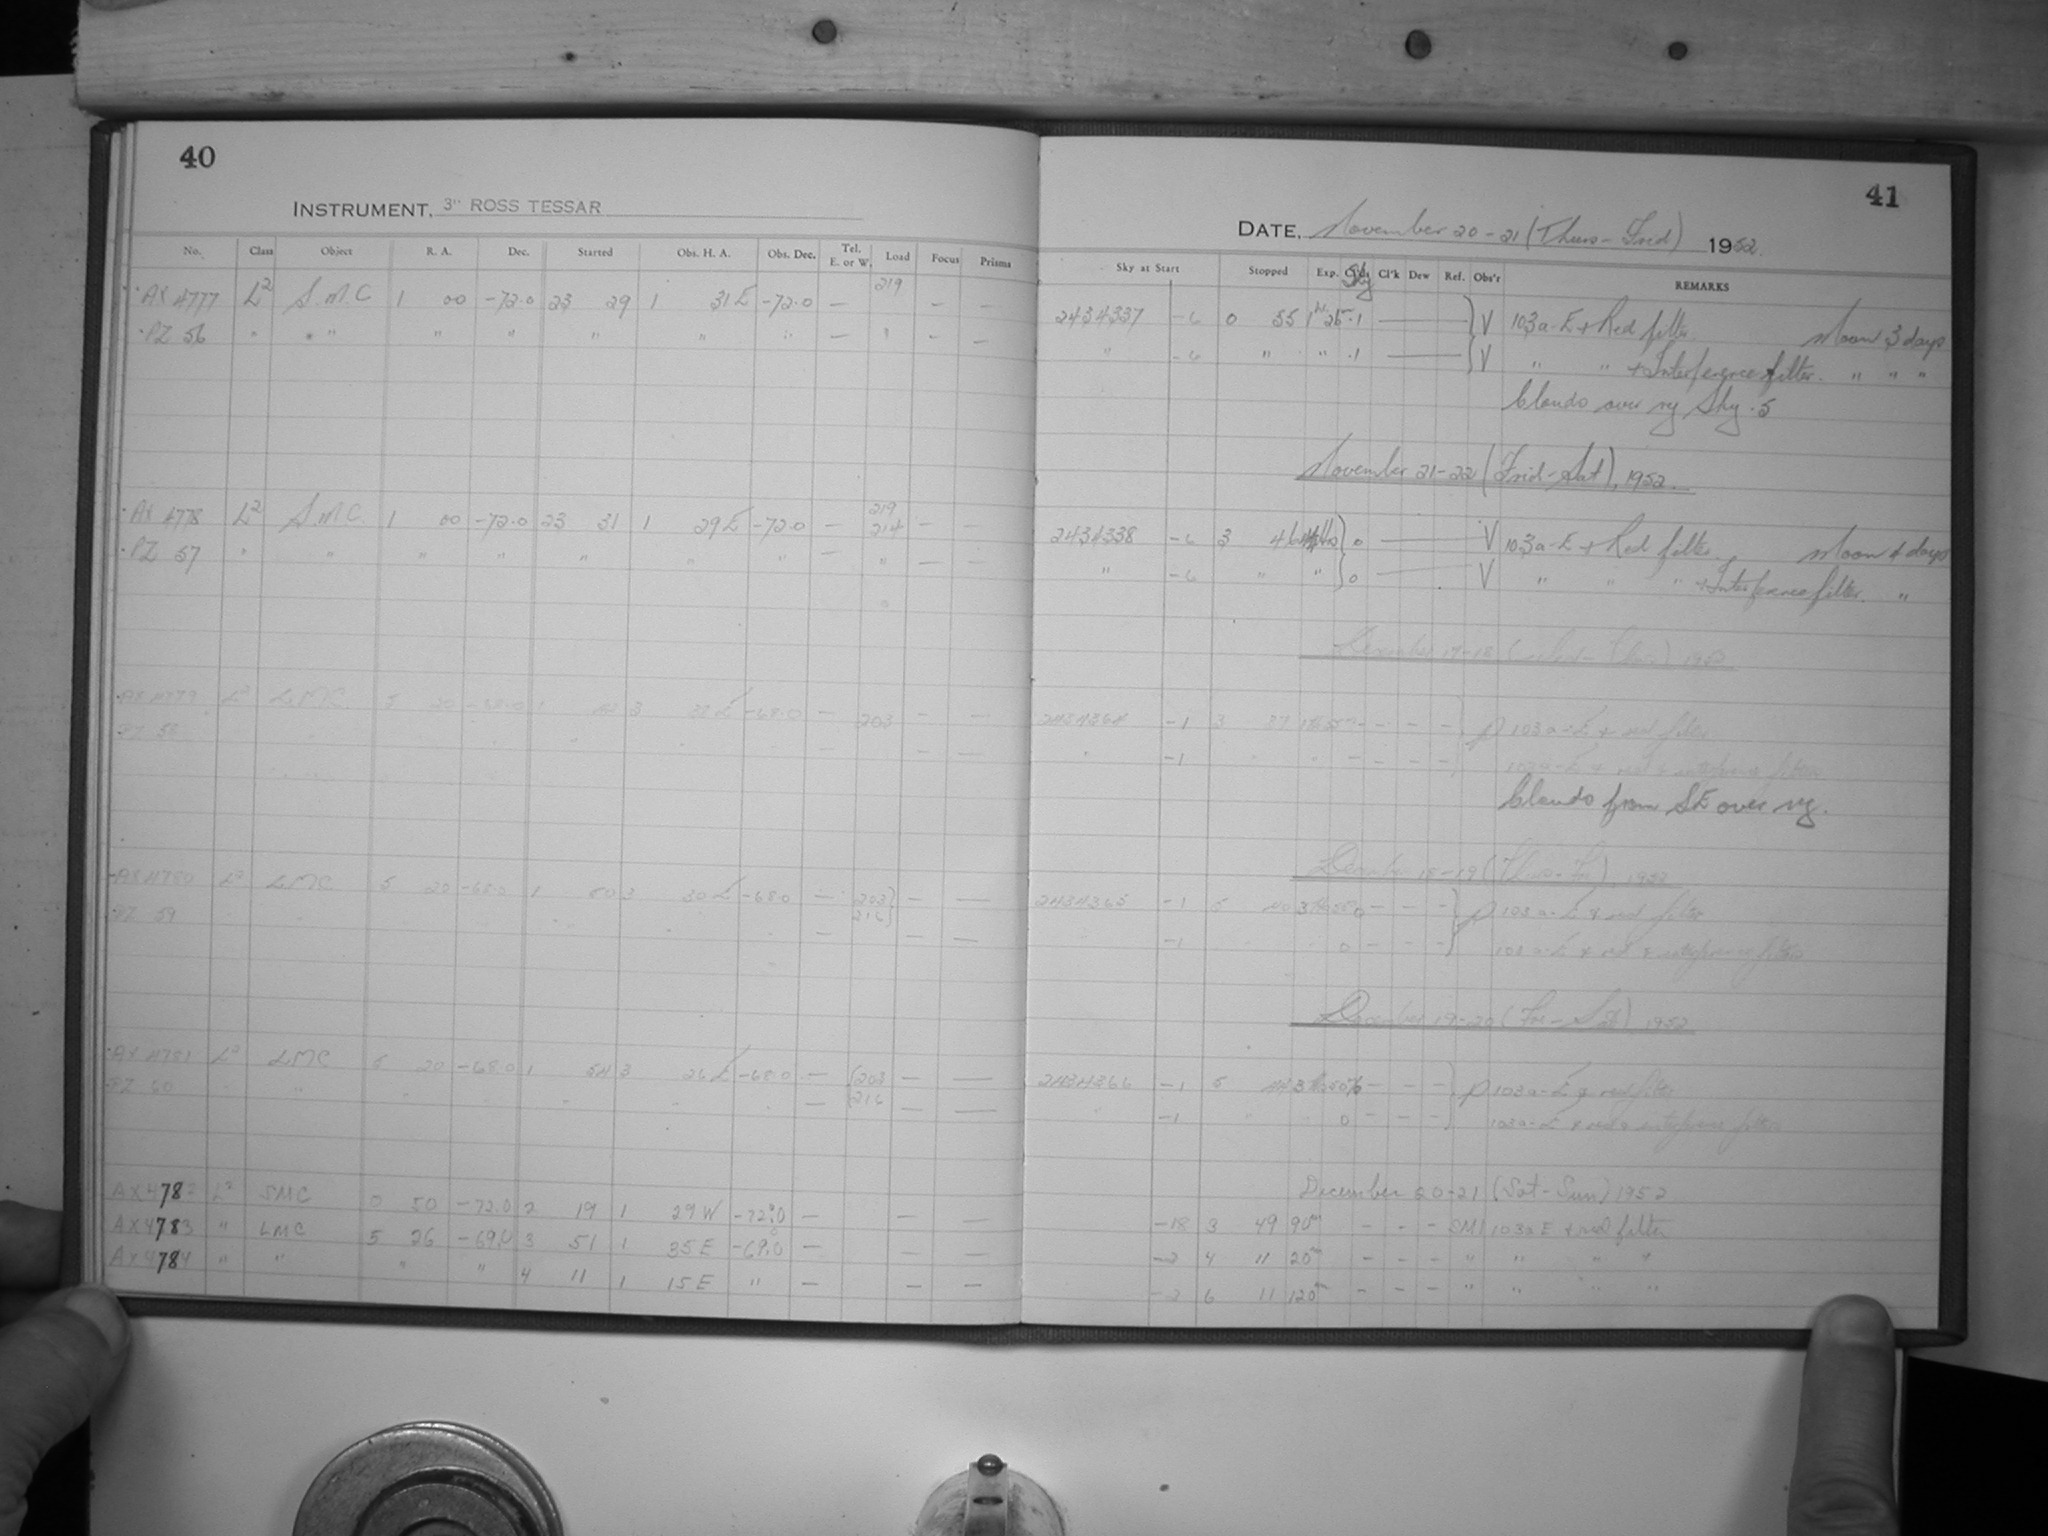 40
INSTRUMENT, 3" ROSS TESSAR
No. Class Object R. A. Dec. Started Obs. H. A. Obs. Dec. Tel. E. or W. Load Focus Prisms
219
AX 4777 L2 S.M.C 1 00 -72.0 23 29 1 31 E -72.0 — — —
PZ 56 " " " " " " " — " — —
219
AX 4778 L2 S.M.C. 1 00 -72.0 23 31 1 29 E -72.0 — 214 — —
PZ 57 " " " " " " " — " — —
AX 4779 L2 LMC 5 20 -68.0 1 3 38 E -68.0 — 203 — —
PZ 58 — — —
AX 4780 L2 LMC 5 20 -68.0 1 50 3 30 E -68.0 — 203 — —
PZ 59 — 216 — —
AX 4781 L2 LMC 5 20 -68.0 1 54 3 26 E -68.0 — 203 — —
PZ 60 " — 216 — —
AX 4782 L2 SMC 0 50 -72.0 2 19 1 29 W -72.0 — — —
AX 4783 " LMC 5 26 -69.0 3 51 1 35 E -69.0 — — —
AX 4784 " " " " 4 11 1 15 E " — — —
41
DATE, November 20-21 (Thurs-Frid) 1952.
Sky at Start Stopped Exp. Cl'ds Sky Cl'k Dew Ref. Obs'r REMARKS
2434337 -6 0 55 1h 25 .1 — V 103a-E + Red filter. Moon 3 days
" -6 " " .1 — V " " + Interference filter. " " "
Clouds over ry Sky .5
November 21-22 (Frid-Sat), 1952.
2434338 -6 3 46 0 — V 103a-E + Red filter Moon 4 days
" -6 " " 0 — V " " " + Interference filter. "
December 17-18 1952
2434364 -1 3 37 - - - 103a-E + red filter
" -1 - - - - 103a-E + red + interference filter
Clouds from SE over ry.
December 18-19 (Thurs-Fri), 1952
2434365 -1 5 40 0 - - - 103a-E + red filter
-1 0 - - - 103a-E + red + interference filter
December 19-20 (Fri-Sat) 1952
2434366 -1 5 44 - - - 103a-E + red filter
-1 0 - - - 103a-E + red + interference filter
December 20-21 (Sat-Sun) 1952
-18 3 49 90m - - - SM 103a E + red filter
-2 4 11 20m - - - " " " "
-2 6 11 120m - - - " " " "